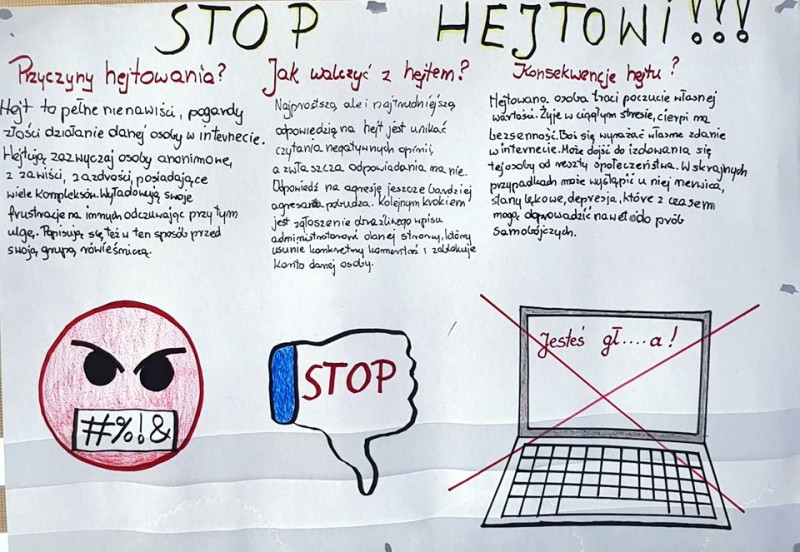 STOP HEJTOWI!!!
Przyczyny hejtowania?
Hejt to pełne nienawiści, pogardy
złości działanie danej osoby w internecie.
Hejtują zazwyczaj osoby anonimowe,
z zawiści, zazdrości, posiadające
wiele kompleksów. Wyładowują swoje
frustracje na innych odczuwając przy tym
ulgę. Popisują się też w ten sposób przed
swoją grupą rówieśniczą.
Jak walczyć z hejtem?
Najprostszą, ale i najtrudniejszą
odpowiedzią na hejt jest unikać
czytania negatywnych opinii,
a zwłaszcza odpowiadania na nie.
Odpowiedź na agresję jeszcze bardziej
agresora pobudza. Kolejnym krokiem
jest zgłoszenie obraźliwego wpisu
administratorowi danej strony, który
usunie konkretny komentarz i zablokuje
konto danej osoby.
Konsekwencje hejtu?
Hejtowana osoba traci poczucie własnej
wartości. Żyje w ciągłym stresie, cierpi na
bezsenność. Boi się wyrażać własne zdanie
w internecie. Może dojść do izolowania się
tej osoby od reszty społeczeństwa. W skrajnych
przypadkach może wystąpić u niej nerwica,
stany lękowe, depresja, które z czasem
mogą doprowadzić nawet do prób
samobójczych.
#%!&
STOP
Jesteś gł....a!